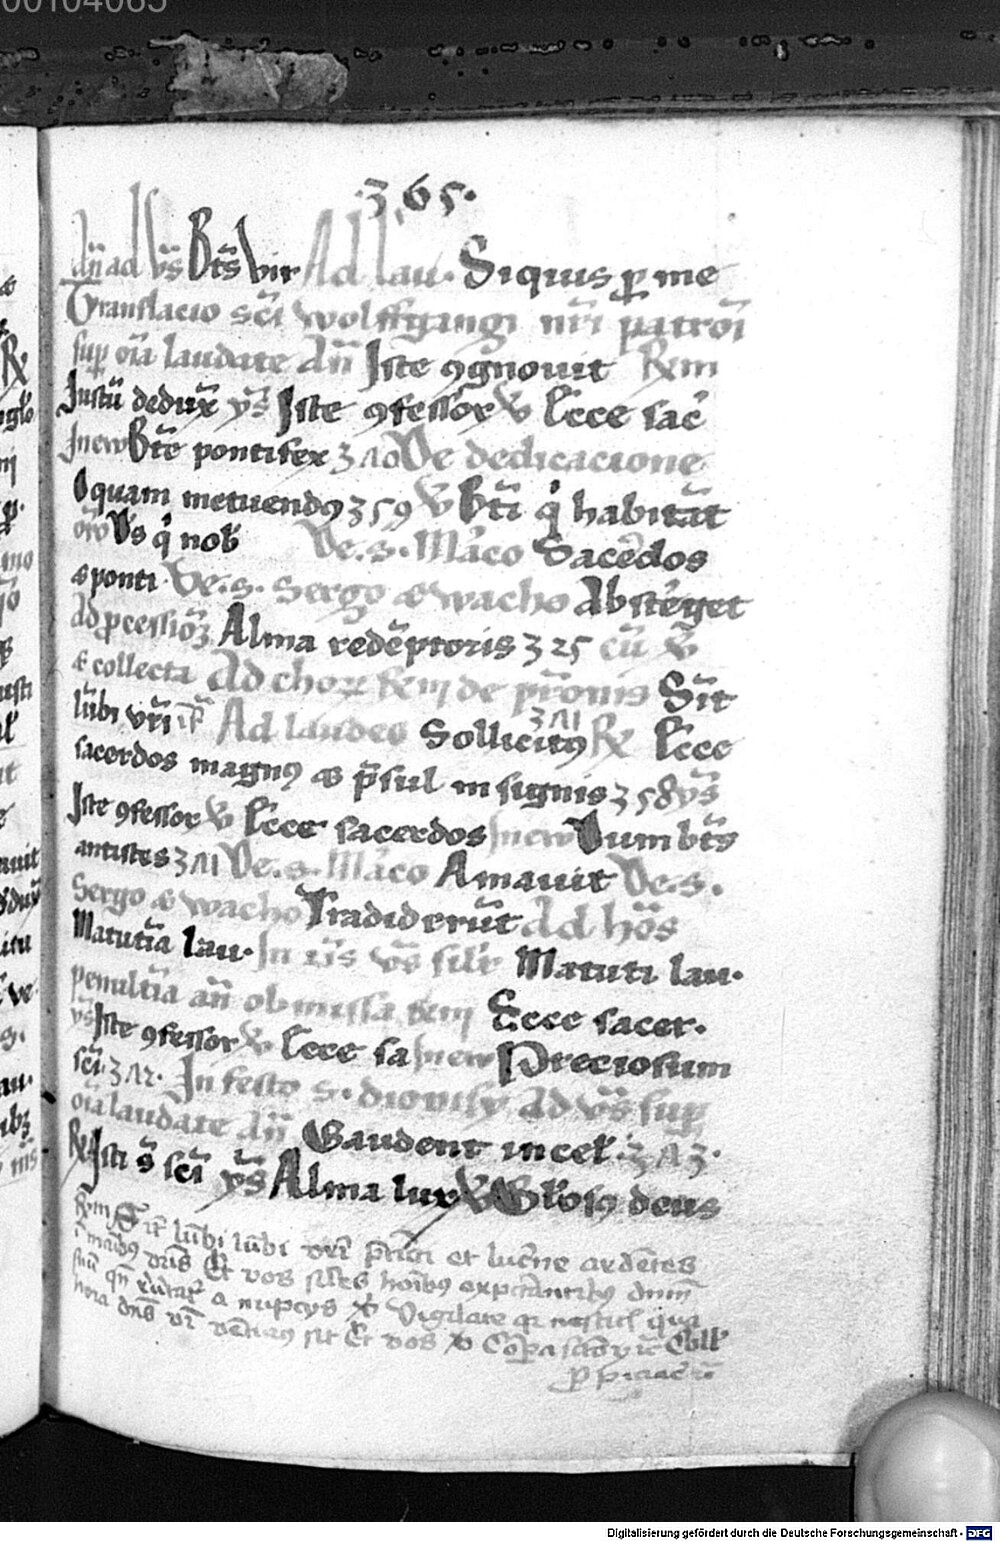 00104085
.365.
dn̄ ad vs̄ Bt̄s vir Ad lau. Siquis p me
Translacio sc̄i wolffgangi nr̄i patroī
sup oīa laudate dn̄ Iste 9gnouit Rm
Iustū deduxͬ ys̄ Iste 9fessor v Ecce sac̄
In ew Bt̄e pontifex 340 De dedicacione
O quam metuend9 359 v bt̄i q̇ habitāt
or̄o Ds̄ q̇ nob De.s. Marco Sacerdos
& ponti De.s. Sergo & wacho Absterget
Ad pcessioʒ Alma redēptoris 325 cū v̄
& collecta Ad choꝝ Rm de pr̄onis Sīt
lūbi vr̄i Ad laudes Sollicit9 341 R Ecce
sacerdos magn9 & p̄sul insignis 358 ys̄
Iste 9fessor v Ecce sacerdos In ew Dum bt̄s
antistes 341 De.s. Marco Amauit De.s.
Sergo & wacho Tradiderūt Ad hōs
Matutīa lau. In vs̄ sil̄r Matuti lau.
penultīa an̄ obmissa Ecce sacer.
ys̄ Iste 9fessor v Ecce sa In ew Preciosum
sc̄i. 342. In festo s. dionisy Ad vs̄ sup
oīa laudate dn̄ Gaudent in cel. 343.
R Isti s̄ sc̄i ys̄ Alma lux v Glosi9 deus
Rm Sīt lūbi lūbi vr̄i et lucerne ardētes
Et vos sil̄es hoībus expectantib9 dnm̄
a nupcys v Vigilate qr nescitis qua
hora dn̄s vr̄ ventur9 sit Et vos v Coll
Digitalisierung gefördert durch die Deutsche Forschungsgemeinschaft - DFG